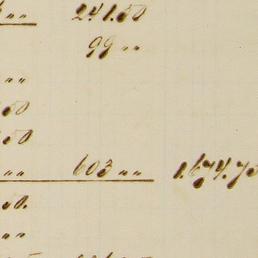 „„ 241.50
99 „„
„„
50
50
„„ 603 „„ 1.674.75
50.
„„